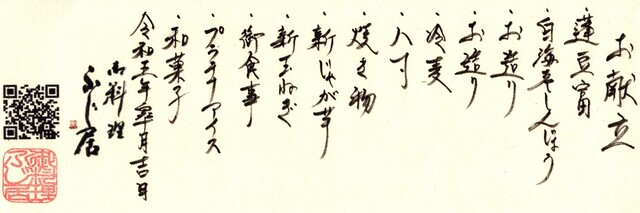 お献立
・蓮豆富
・白海老しんじょう
・お造り
・お造り
・冷麦
・八寸
・焼き物
・新じゃが芋
・新玉ねぎ
・御食事
・プラチナアイス
・和菓子
令和五年皐月吉日
御料理
ふじ居